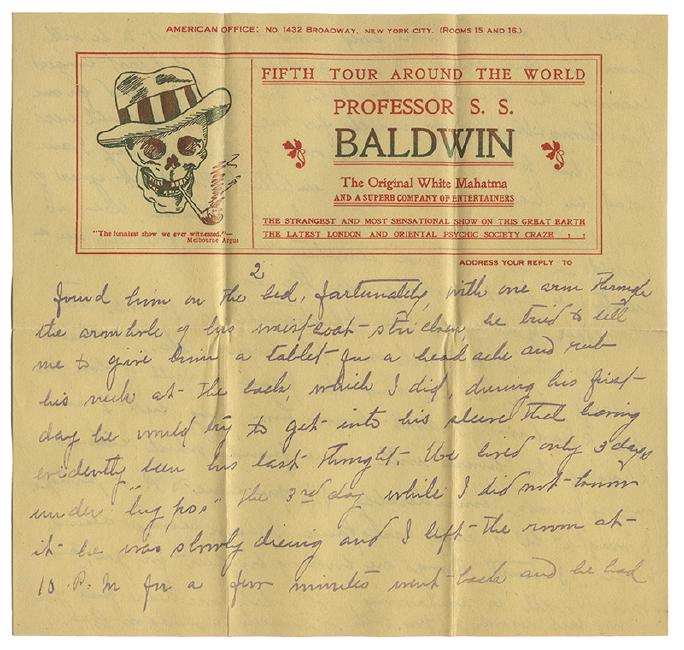 AMERICAN OFFICE: NO. 1432 BROADWAY, NEW YORK CITY. (ROOMS 15 AND 16.)
FIFTH TOUR AROUND THE WORLD
PROFESSOR S. S.
BALDWIN
The Original White Mahatma
AND A SUPERB COMPANY OF ENTERTAINERS
THE STRANGEST AND MOST SENSATIONAL SHOW ON THIS GREAT EARTH
THE LATEST LONDON AND ORIENTAL PSYCHIC SOCIETY CRAZE , ,
"The funniest show we ever witnessed."—
Melbourne Argus
ADDRESS YOUR REPLY TO
2
found him on the bed, fortunately, with one arm through
the armhole of his waist-coat - stricken he tried to tell
me to give him a tablet for a head ache and rub
his neck at the back, which I did, during his first
day he would try to get into his sleeve that having
evidently been his last thought. He lived only 3 days
under the 3rd day while I did not know
it he was slowly dieing and I left the room at
10 P.M for a few minutes went back and he had